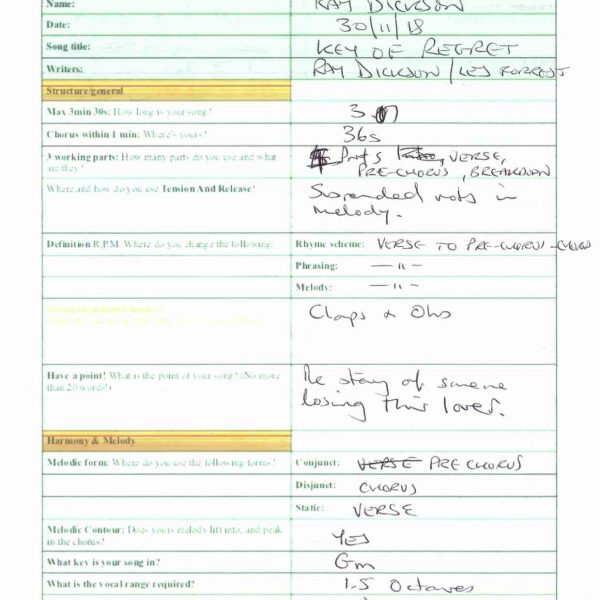 Name: RAY DICKSON
Date: 30/11/18
Song title: KEY OF REGRET
Writers: RAY DICKSON / LES FORREST
Structure/general
Max 3min 30s: How long is your song? 3.
Chorus within 1 min: Where's yours? 36s
3 working parts: How many parts do you use and what are they? Parts , VERSE,
PRE-CHORUS, BREAKDOWN
Where and how do you use Tension And Release? Suspended nots in
melody.
Definition R.P.M. Where do you change the following: Rhyme scheme: VERSE TO PRE-CHORUS - CHORUS
Phrasing: — 11 –
Melody: — 11 –
Claps & Ohs
Have a point! What is the point of your song? (No more
than 20 words!)
The story of someone
losing their lover.
Harmony & Melody
Melodic form: Where do you use the following forms? Conjunct: VERSE PRE CHORUS
Disjunct: CHORUS
Static: VERSE
Melodic Contour: Does yours melody lift into, and peak
in the chorus? YES
What key is your song in? Gm
What is the vocal range required? 1.5 Octaves